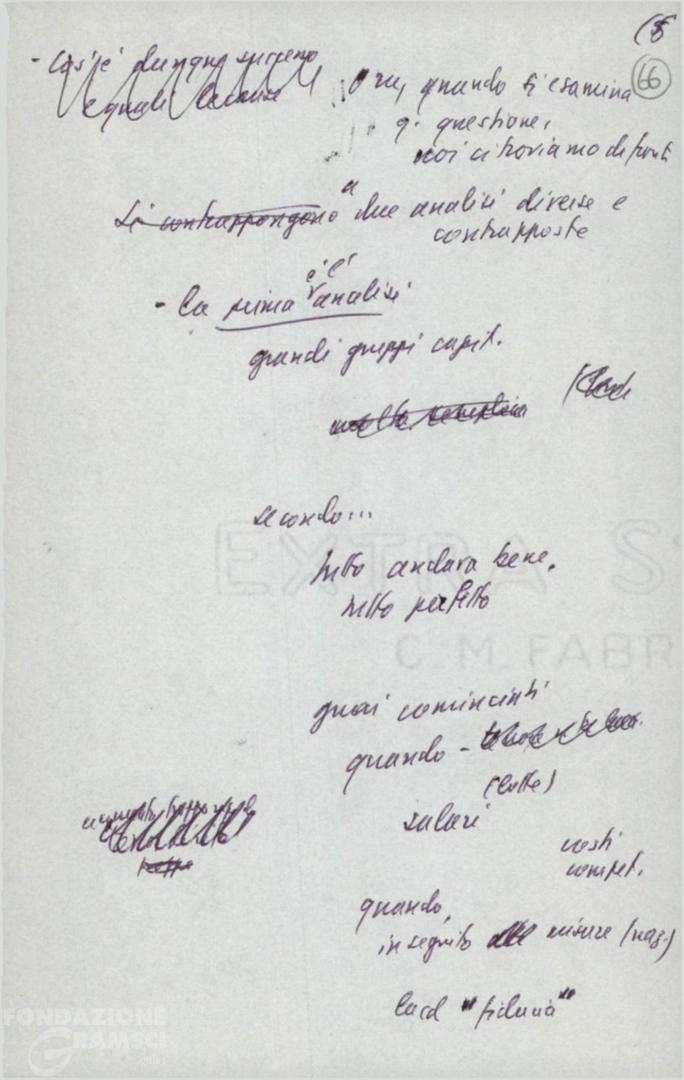 (8
66
- Cos'è dunque successo
e quali
Ora, quando si esamina
q. questione,
noi ci troviamo di fronte
si contrappongono a due analisi diverse e
contrapposte
- la prima è l'analisi
grandi gruppi capit.
secondo...
tutto andava bene,
tutto perfetto
guai cominciati
quando -
(lotte)
salari
costi
compet.
quando,
in seguito misure (naz.)
"fiducia"
EXTRA S
C. M. FABR
FONDAZIONE
GRAMSCI